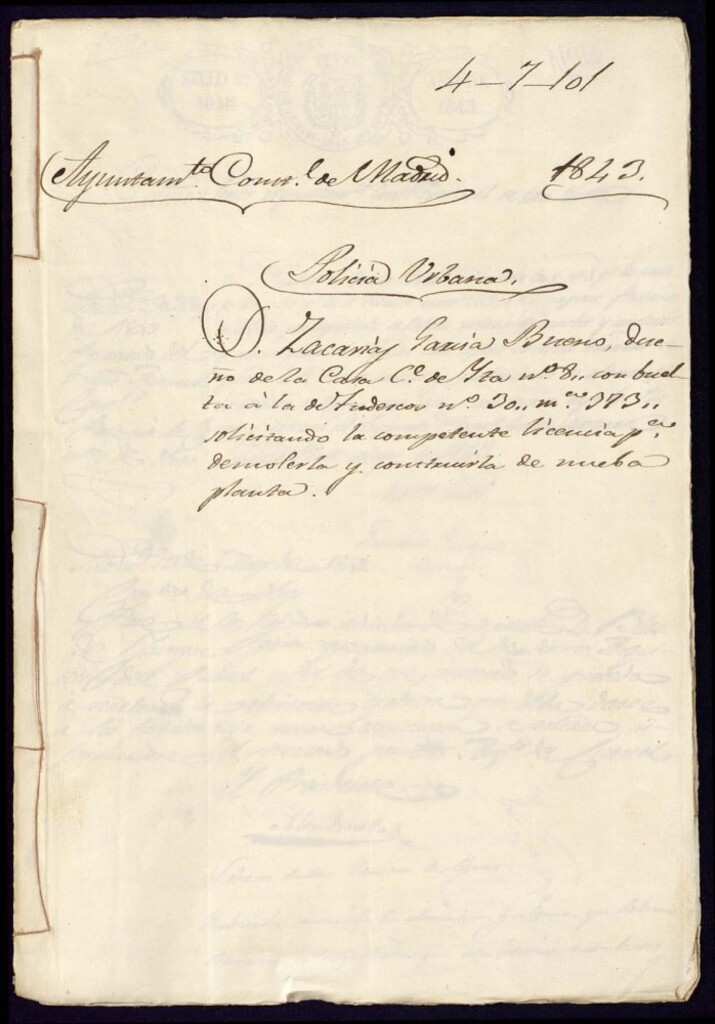 4-7-101
Ayuntam.to Const.l de Madrid. 1843.
Policia Urbana.
D. Zacarias Garcia Bueno, due-
ño de la Casa C.e de Yta nº 8., con buel-
ta à la de Tudescos nº 30., m.na 373.,
solicitando la competente licencia p.a
demolerla y construirla de nueba
planta.